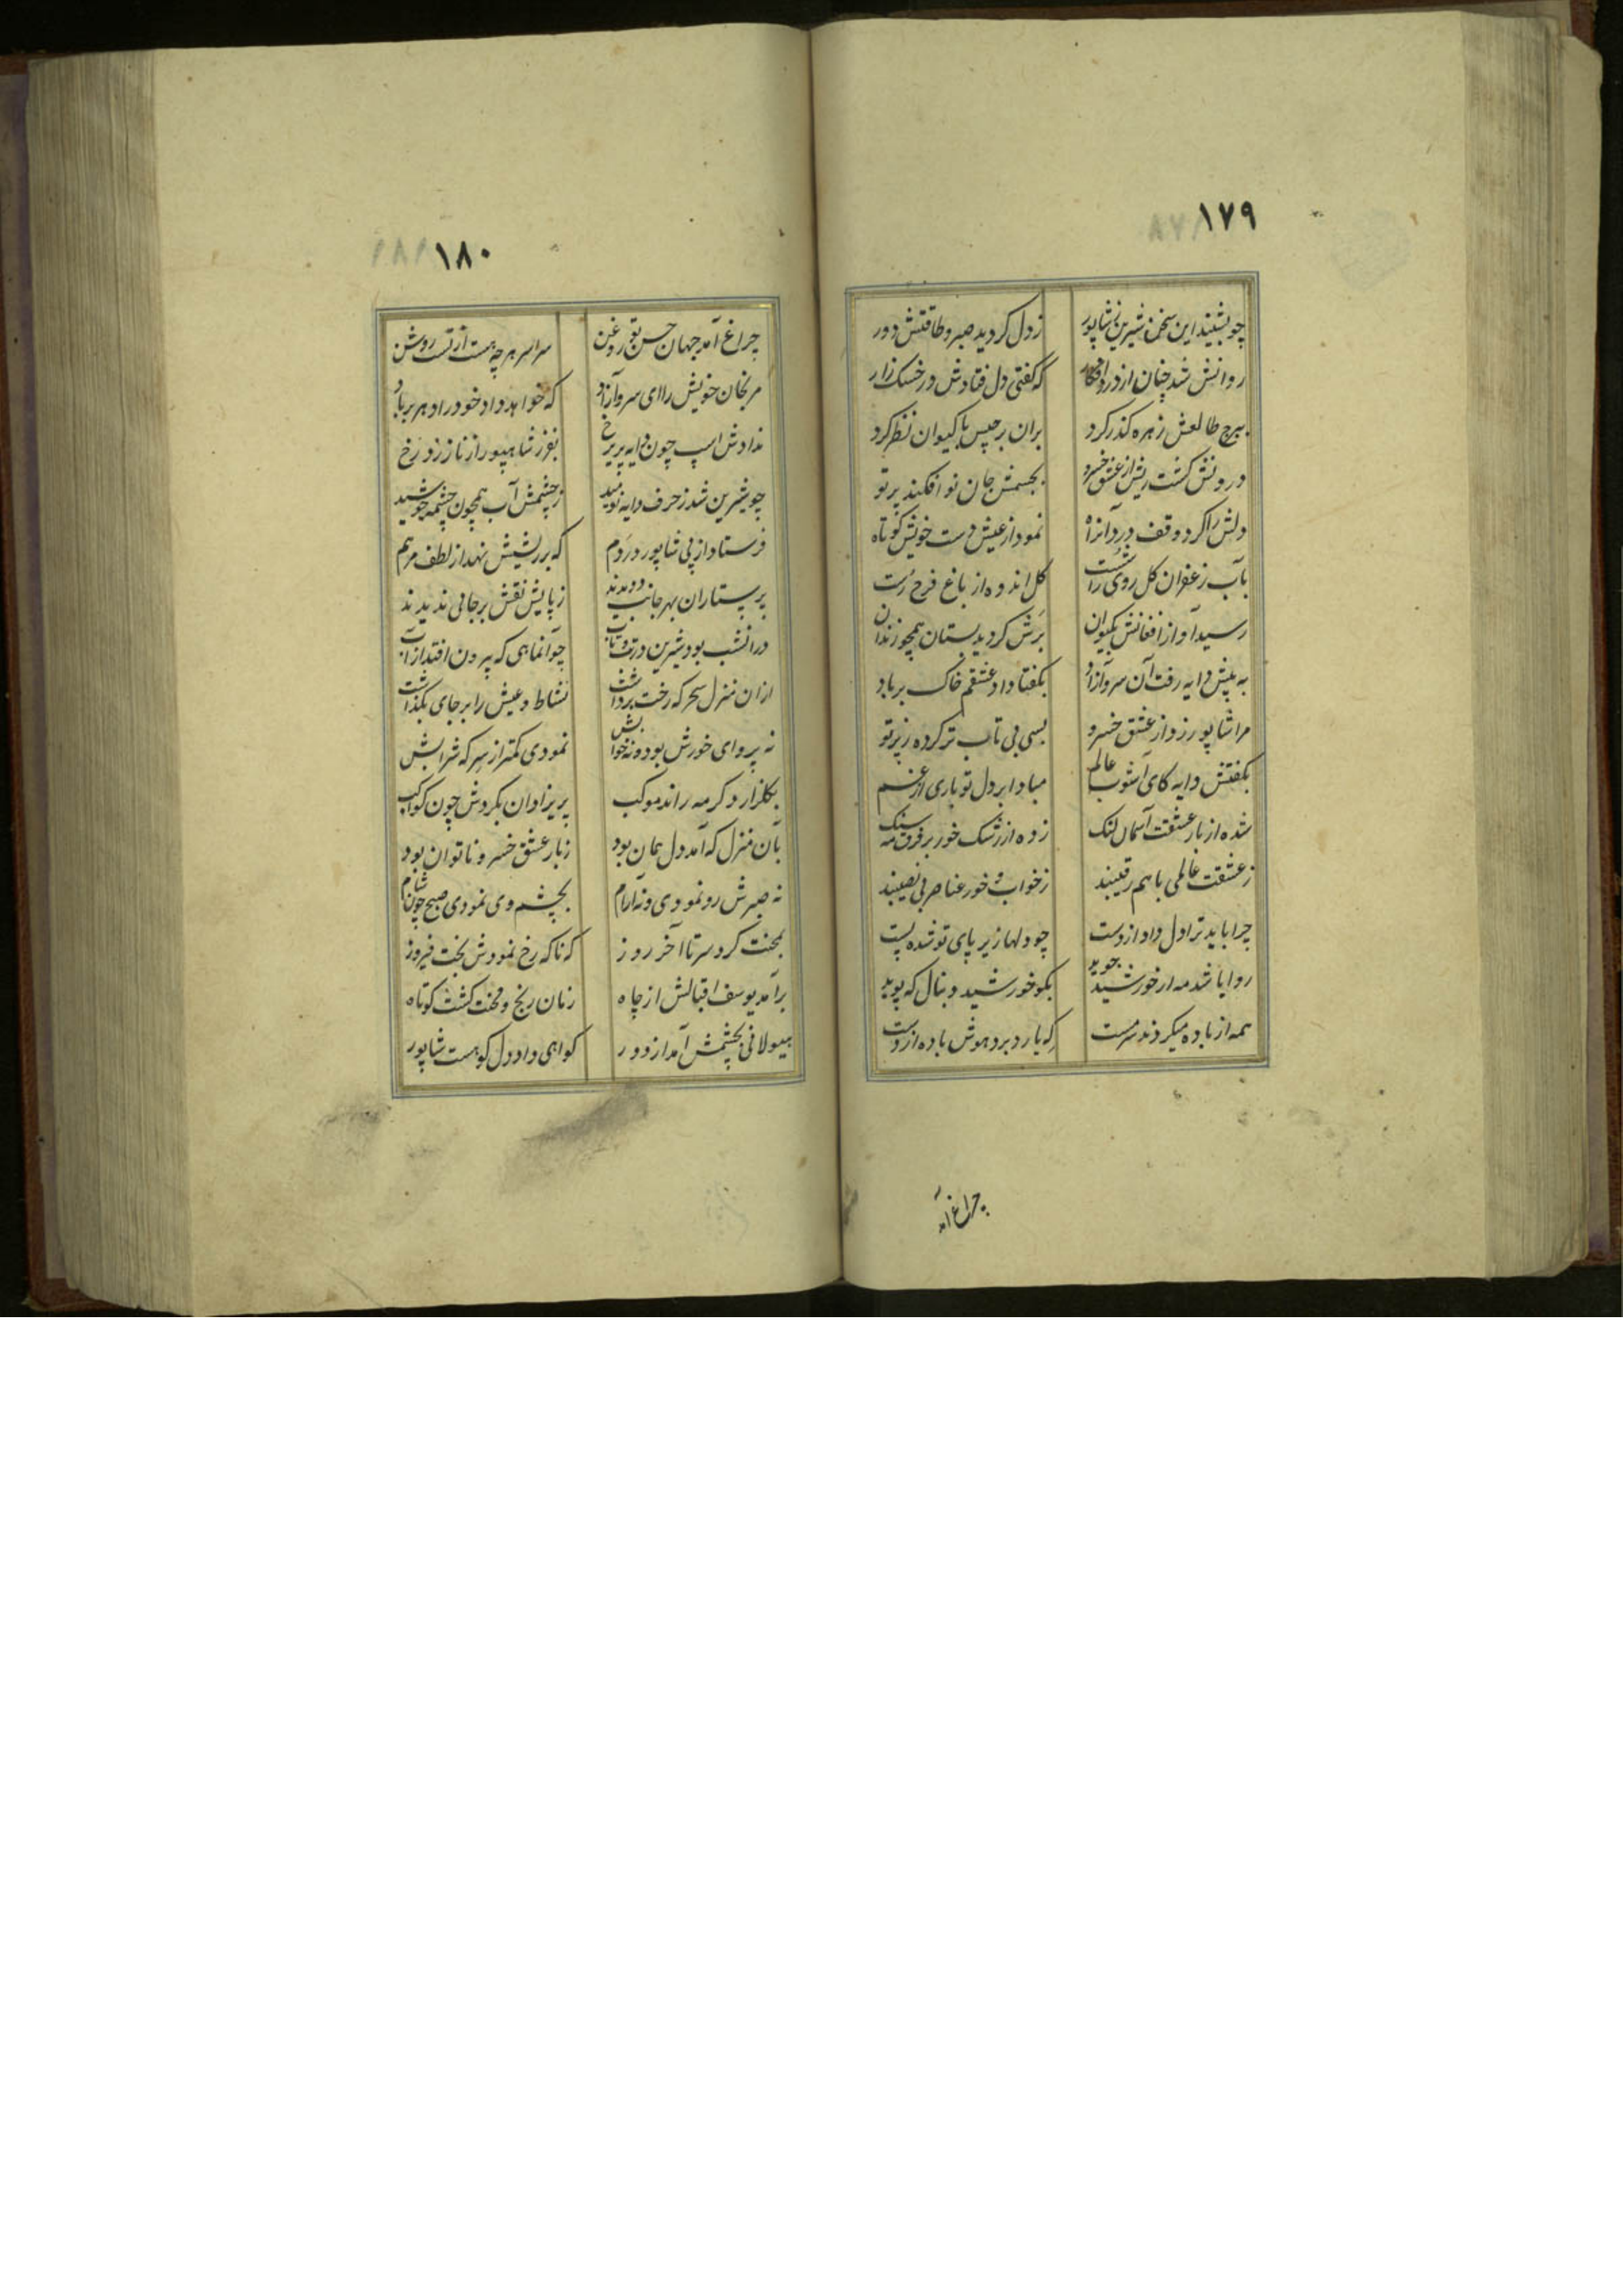 ۱۷۹
چو بشنید این سخن شیرین ز شاپور ز دل کردید صبر و طاقتش دور
روانش شد چنان از درد افکار که کفتی دل فتادش در خسک زار
ببرج طالعش زهره کذر کرد بران برجیس با کیوان نظر کرد
درونش کشت ریش از عشق خسرو بجسمش جان نو افکند پرتو
دلش را کرد وقف درد آنماه نمود از عیش دست خویش کوتاه
بآب زعفران کل روی را شست کل اندوه از باغ فرح رست
رسید آواز افغانش بکیوان برش کردید بستان همچو زندان
به پیش دایه رفت آن سرو آزاد بکفتا داد عشقم خاک بر باد
مرا شاپور زد از عشق خسرو بسی بی تاب تر کرده ز پرتو
بکفتش دایه کای آشوب عالم مبادا بر دل تو باری از غم
شده از بار عشقت آسمان لنک زده از رشک خور بر فرق مه سنک
ز عشقت عالمی با هم رقیبند ز خواب و خور عناصر بی نصیبند
چرا باید ترا دل داد از دست چو دلها زیر پای تو شده پست
روا باشد مه ار خورشید جوید بکو خورشید دنبال که پوید
همه از باده میکردند سرمست که یارد برد هوش باده از دست
چراغ آمد
۱۸۰
چراغ آمد جهان حسن تو روغن سراسر هر چه هست از تست روشن
مرنجان خویش را ای سرو آزاد که خواهد داد خود را دهر بر باد
ندادش اسپ چون دایه پریرخ بفرز شاهپور از ناز زد رخ
چو شیرین شد ز حرف دایه نومید ز چشمش آب همچون چشمه جوشید
فرستاد از پی شاپور در دم که بر ریشش نهد از لطف مرهم
پرستاران بهر جانب دویدند ز پایش نقش بر جائی ندیدند
در انشب بود شیرین در تب و تاب چو آنماهی که بیرون افتد از آب
از ان منزل سحرکه رخت برداشت نشاط و عیش را بر جای بکذاشت
نه پروای خورش بود و نه خوابش نمودی کمتر از سرکه شرابش
بکلزار دکر مه راند موکب پریزادان بکردش چون کواکب
بآن منزل که آمد دل همان بود ز بار عشق خسرو ناتوان بود
نه صبرش رو نمودی و نه آرام بچشم وی نمودی صبح چون شام
بمحنت کرد سر تا آخر روز که ناکه رخ نمودش بخت فیروز
برآمد یوسف اقبالش از چاه زمان رنج و محنت کشت کوتاه
هیولائی بچشمش آمد از دور کواهی داد دل کو هست شاپور